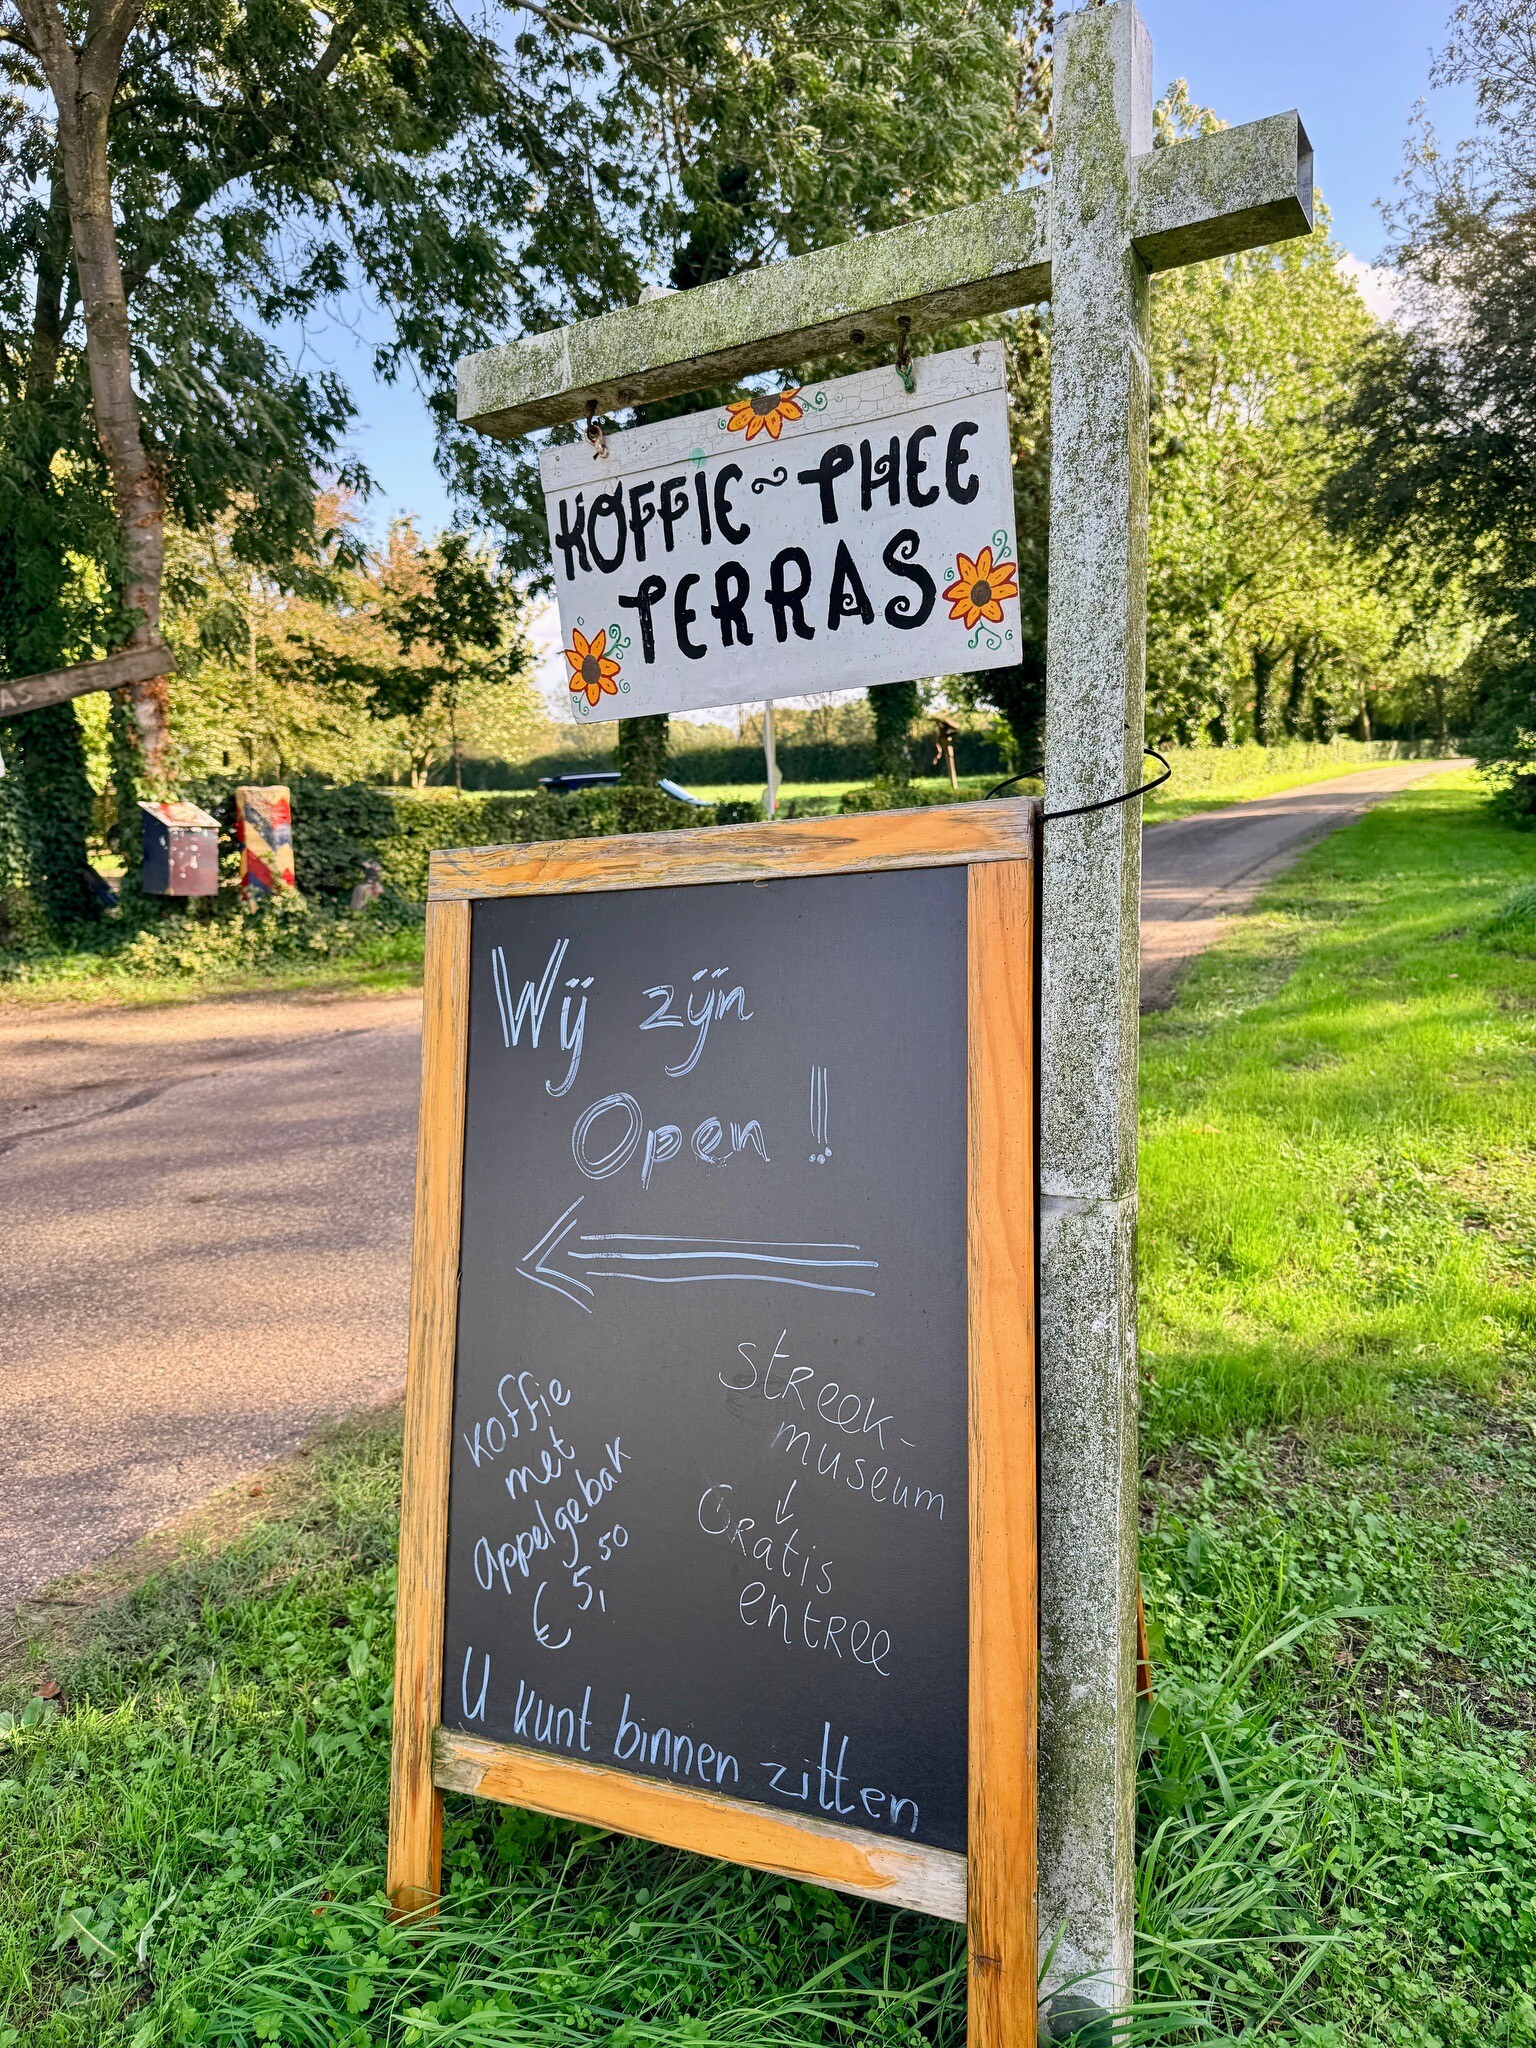 KOFFIE~THEE
TERRAS
AS
Wij zijn
Open !!
Koffie
met
Appelgebak
€ 5,50
Streek-
museum
Gratis
entree
U kunt binnen zitten